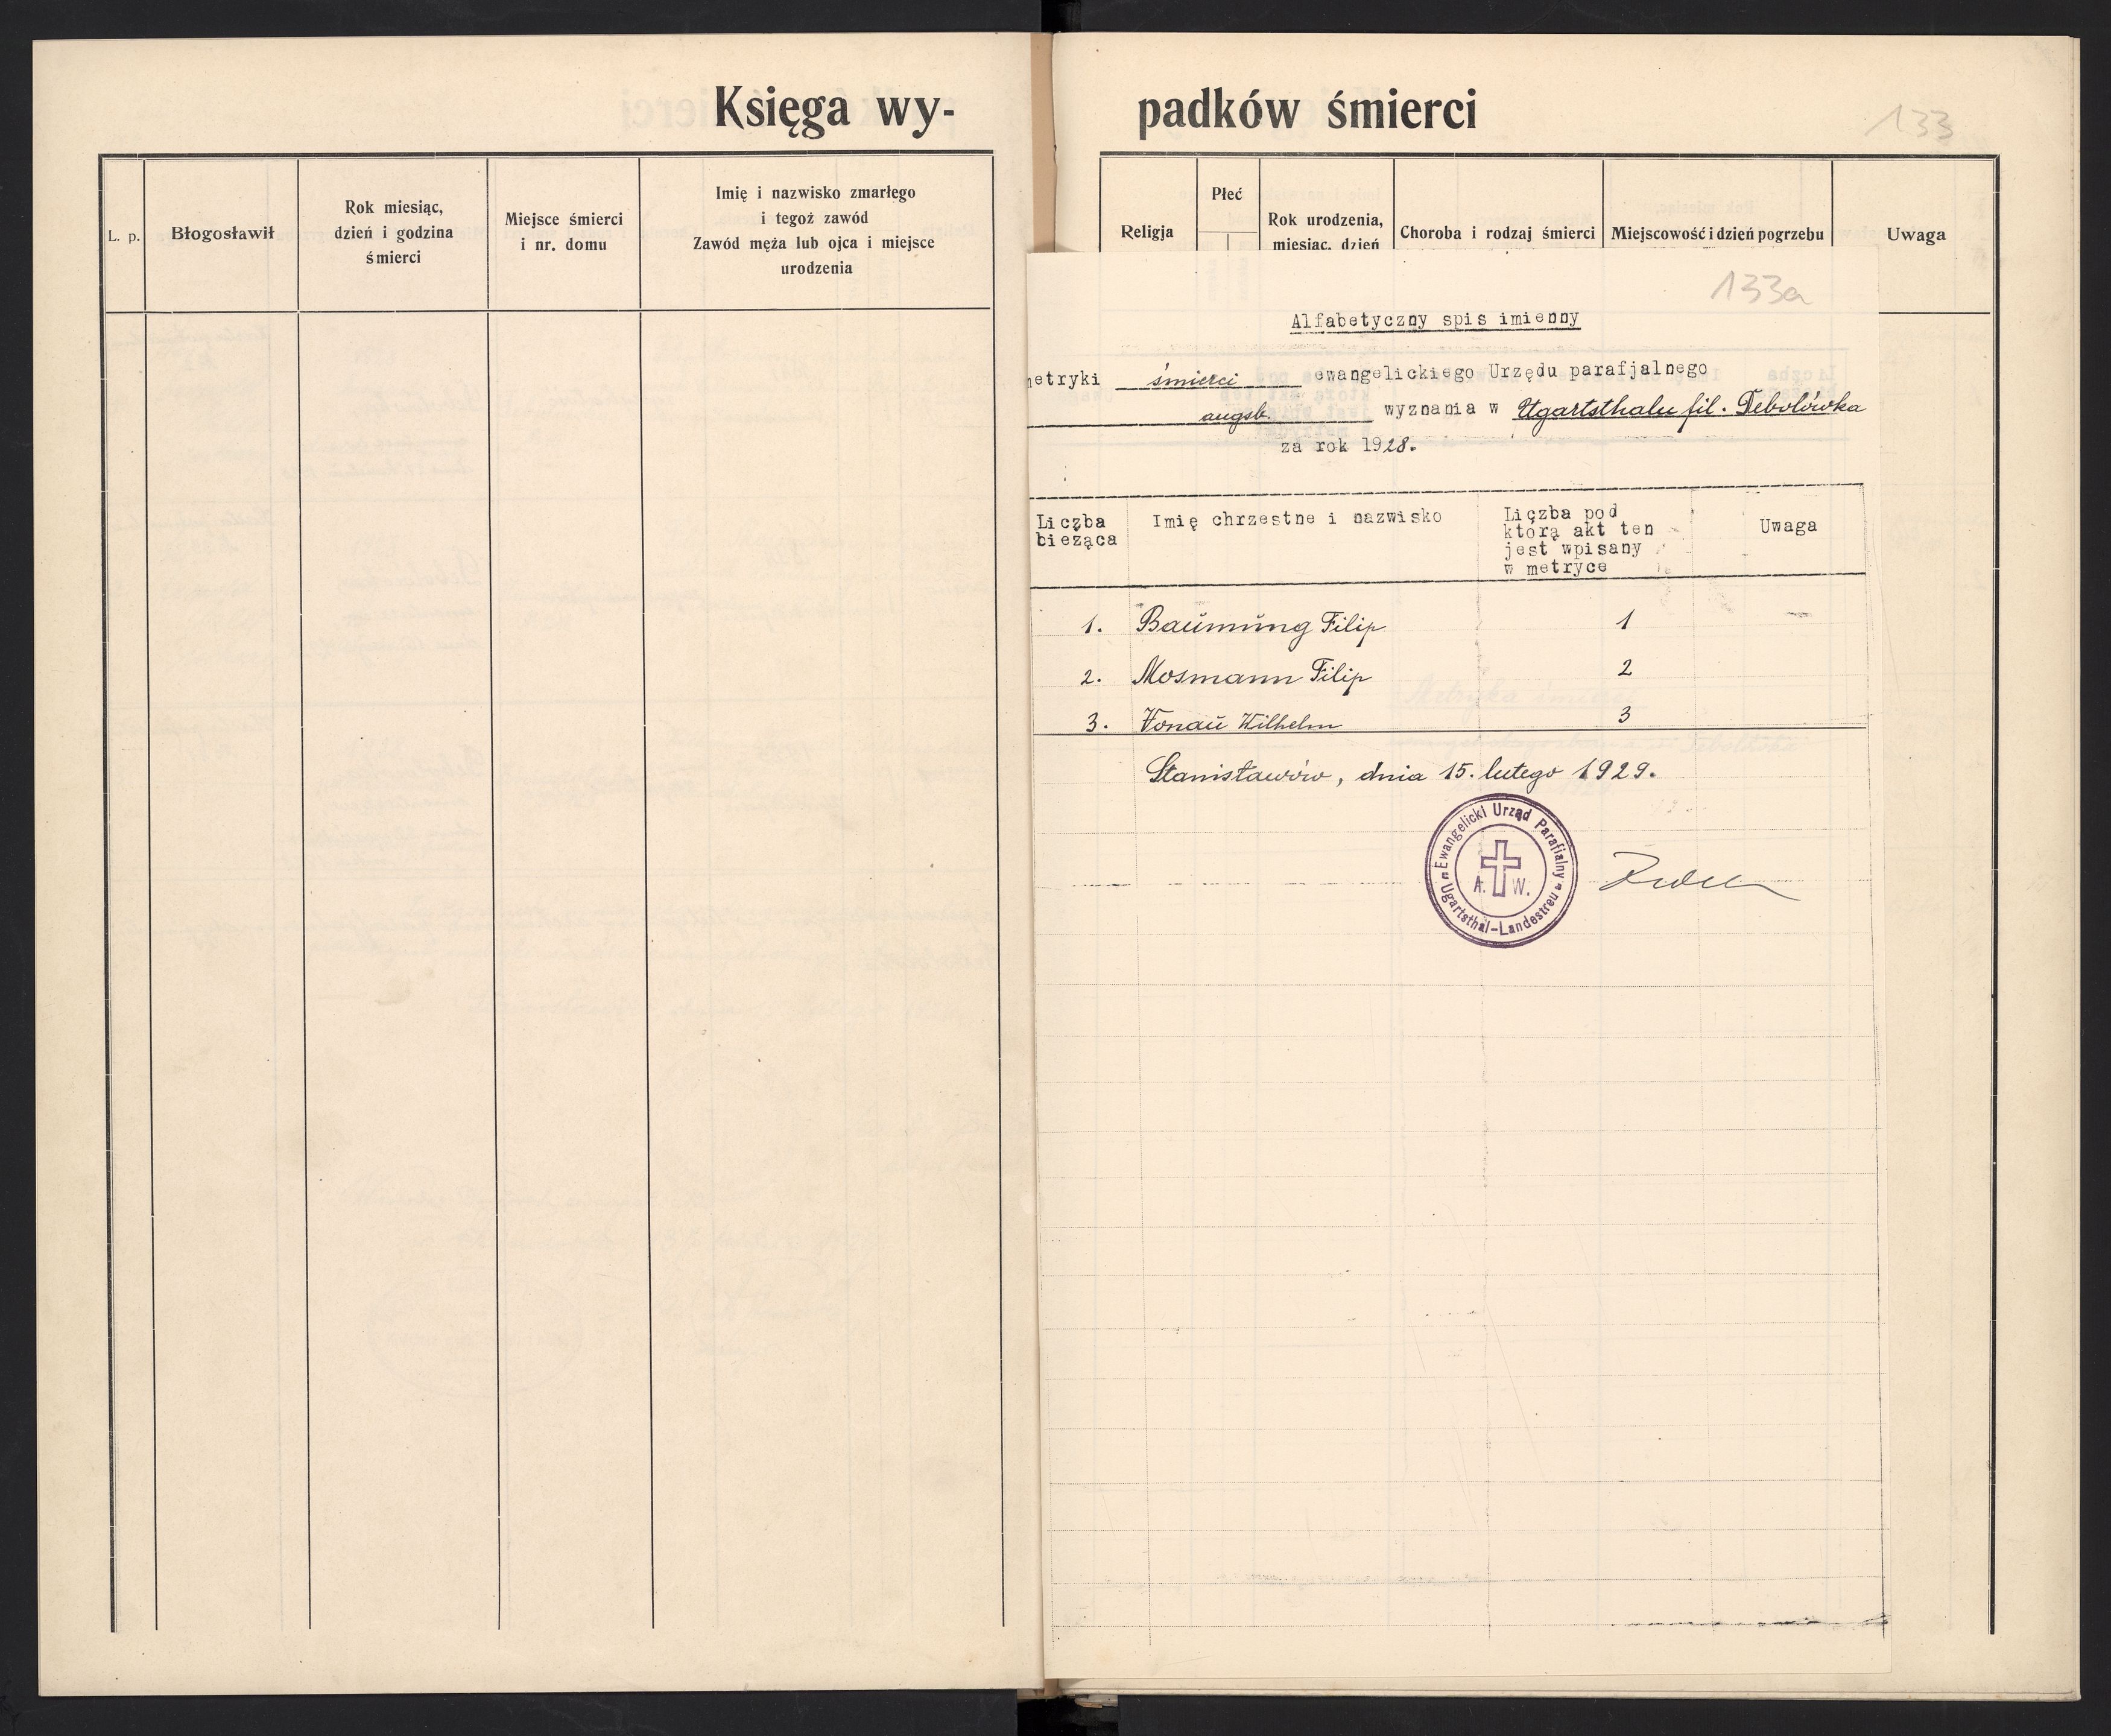 Księga wy-
L. p.
Błogosławił
Rok miesiąc,
dzień i godzina
śmierci
Miejsce śmierci
i nr. domu
Imię i nazwisko zmarłego
i tegoż zawód
Zawód męża lub ojca i miejsce
urodzenia
padków śmierci
133
Religja
Płeć
Rok urodzenia,
miesiąc, dzień
Choroba i rodzaj śmierci
Miejscowość i dzień pogrzebu
Uwaga
133a
Alfabetyczny spis imienny
metryki śmierci ewangelickiego Urzędu parafjalnego
augsb. wyznania w Ugartsthalu fil. Debolówka
za rok 1928.
Liczba
bieżąca
Imię chrzestne i nazwisko
Liczba pod
którą akt ten
jest wpisany
w metryce
Uwaga
1. Baumung Filip 1 —
2. Mosmann Filip 2
3. Vonau Wilhelm 3
Stanisławów, dnia 15. lutego 1929.
Ewangelicki Urząd Parafialny
A. W.
Ugartsthal-Landestreu